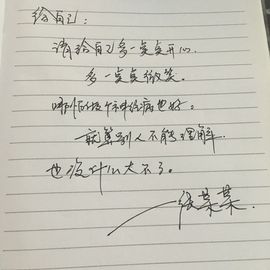 给自己:
请给自己多一点点开心.
多一点点微笑。
哪怕被个神经病也好。
就算别人不能理解.
也没什么大不了。
张某某.